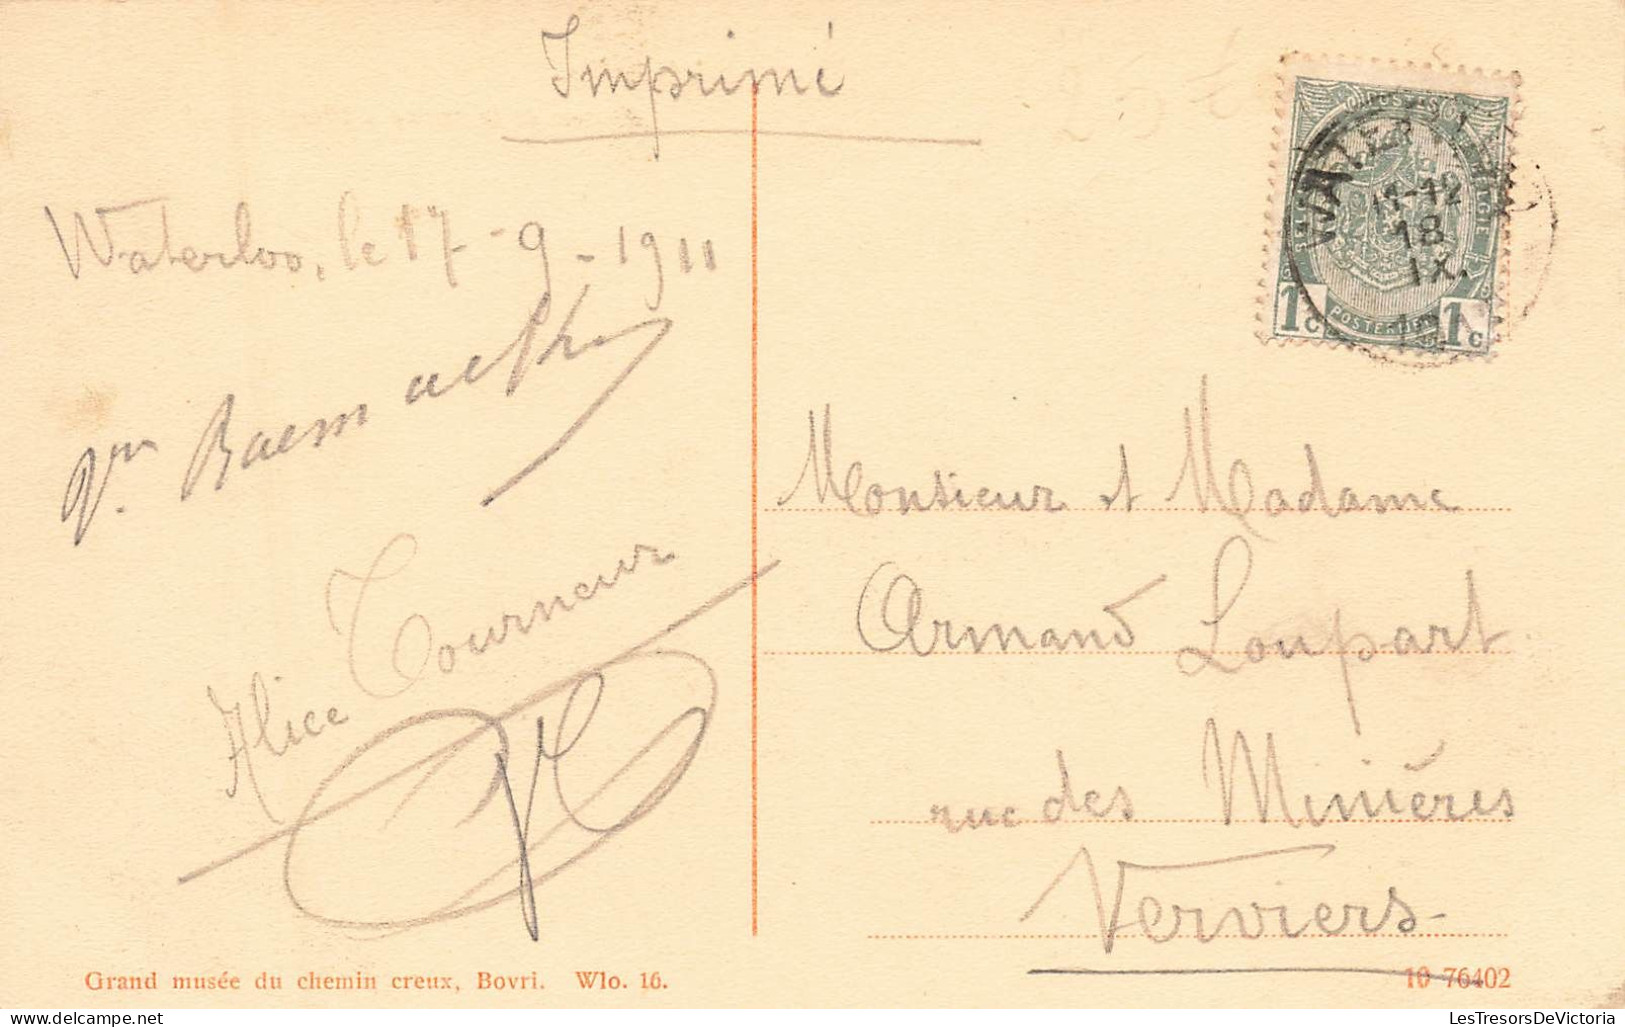 Imprimé
Waterloo, le 17-9-1911
Alice Tourneur
POSTES
BELGIQUE
WATERLOO
11-12
18
IX.
1c
POSTERIJEN
1c
Monsieur et Madame
Armand Loupart
rue des Minières
Verviers
Grand musée du chemin creux, Bovri. Wlo. 16.
10 76402
LesTresorsDeVictoria